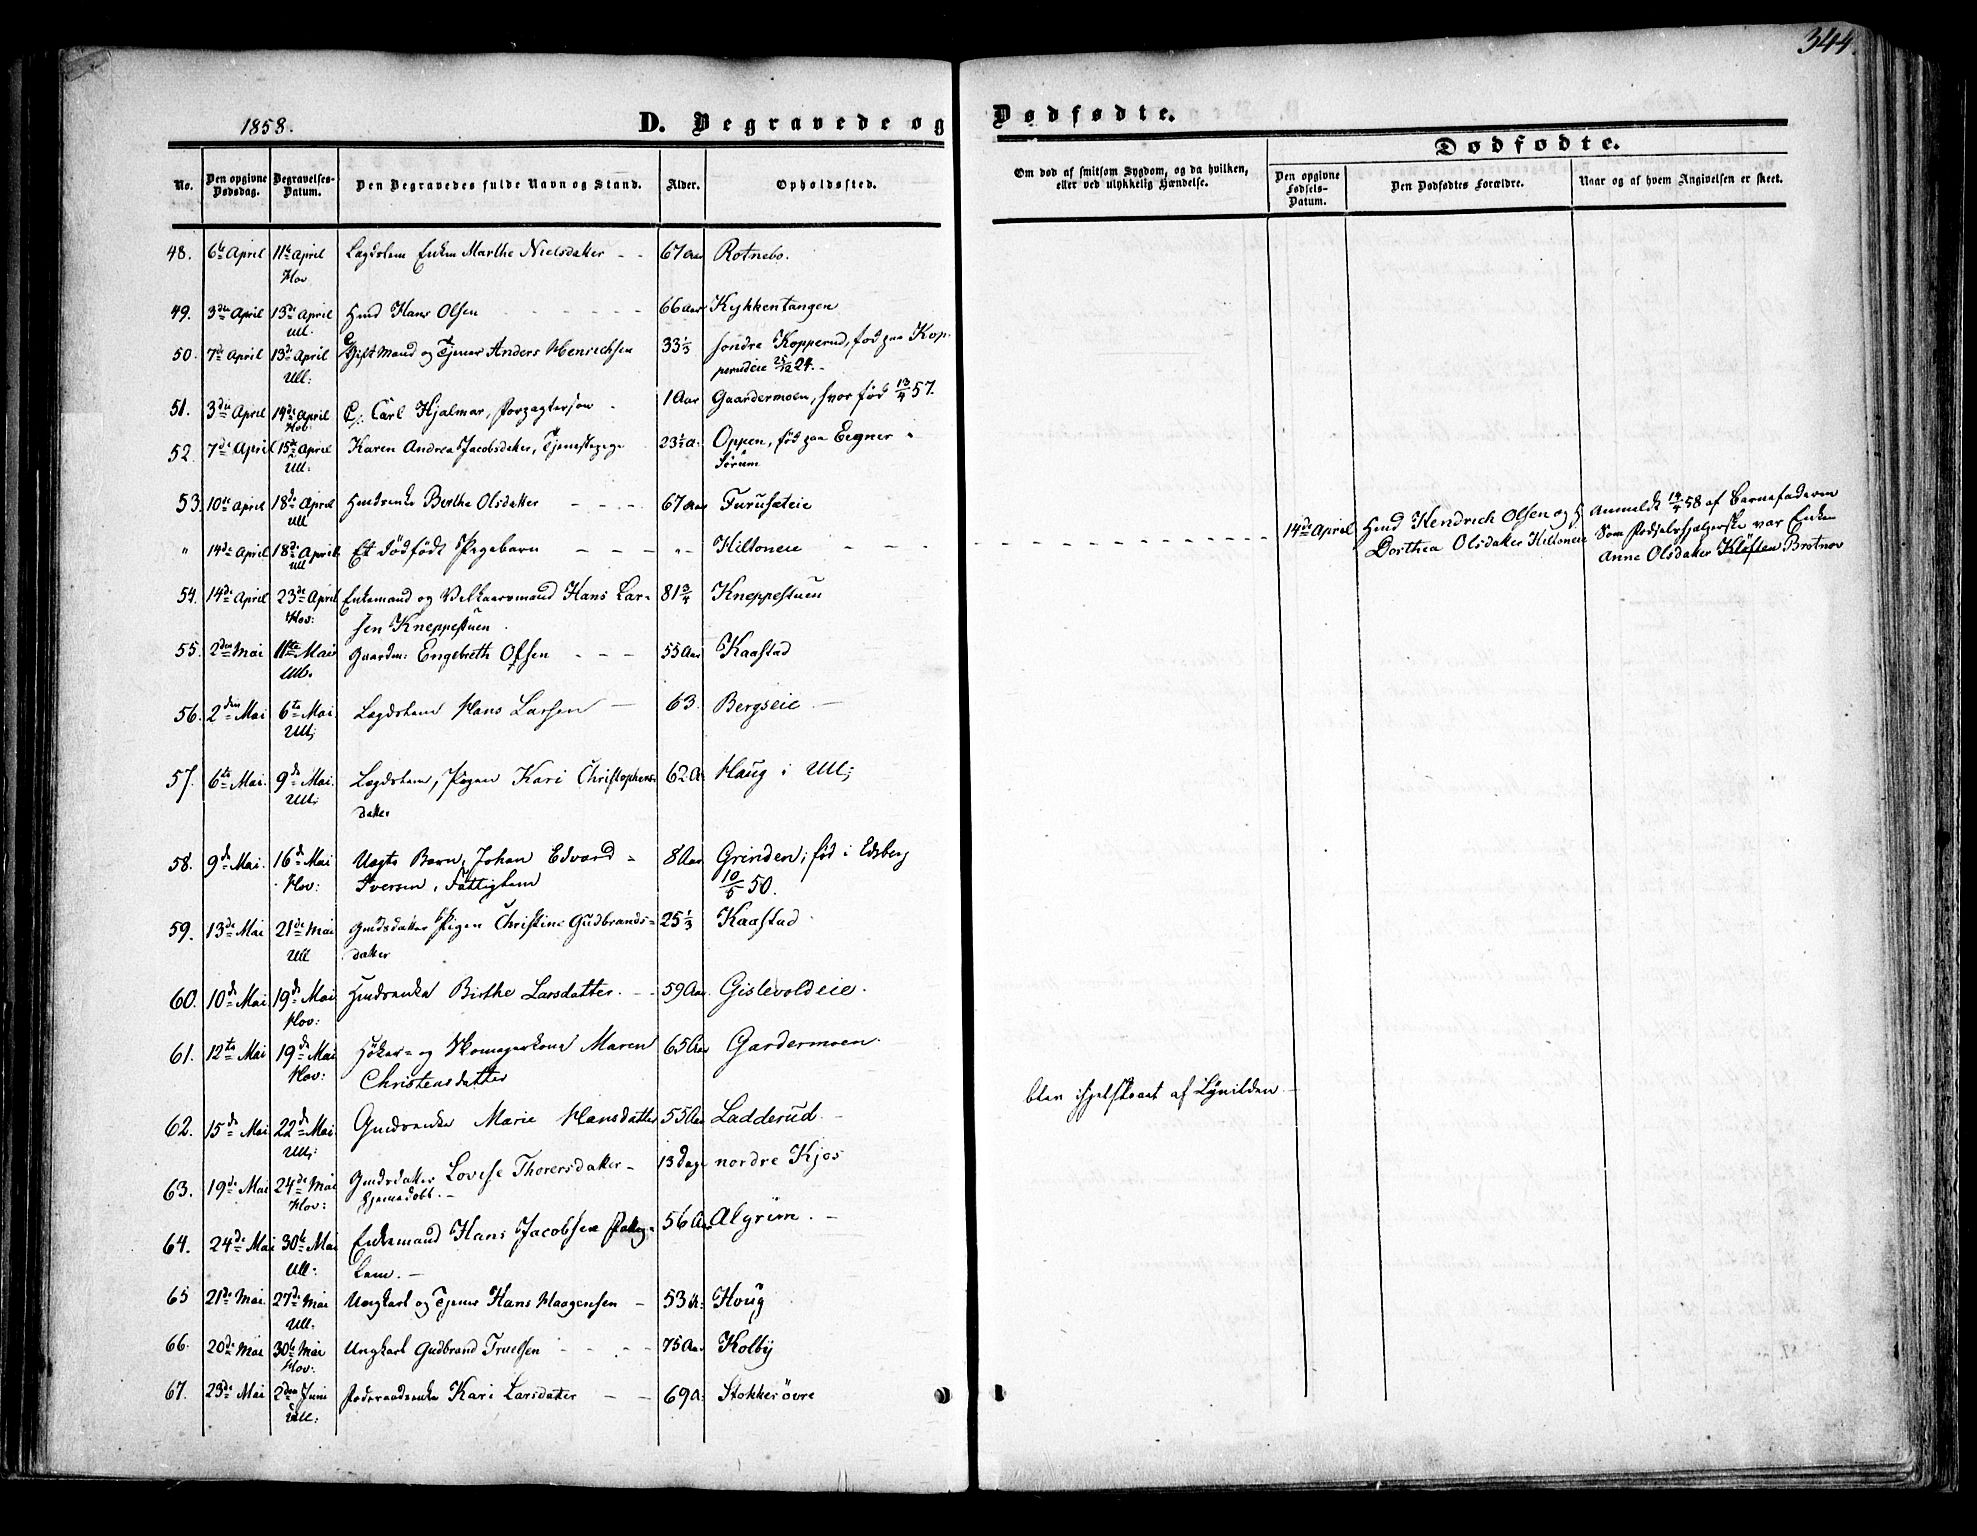 344.
1858. D. Begravede og Dødfødte.
Dødfødte.
No.
Den opgivne Dødsdag.
Begravelses-Datum.
Den Begravedes fulde Navn og Stand.
Alder.
Opholdssted.
Om død af smitsom Sygdom, og da hvilken, eller ved ulykkelig Hændelse.
Den opgivne Fødsels-Datum.
Den Dødfødtes Forældre.
Naar og af hvem Angivelsen er skeet.
48. 6te April 11te April Lægdslem Enken Marthe Nielsdatter - - 67 Aar Rotnebo.
Hov
49. 3die April 13de April Hmd Hans Olsen 66 Aar Kykkentangen
Ull.
50. 7de April 13de April Gift Mand og Tjener Anders Henrichsen 33 1/3 søndre Kopperud, fød paa Kop-
Ull: perudeie 25/12 24.
51. 3die April 14de April C: Carl Hjalmar, 1 Aar Gaardermoen, hvor fød 13/4 57.
Hov.
52. 7de April 15de April Karen Andrea Jacobsdatter, Tjenestepige 23 1/2 A. Oppen, fød paa Eegner i
Ull: Sørum
53. 10de April 18de April Hmdsenke Berthe Olsdatter - - - 67 Aar Furusæteie
Ull
" 14de April 18de April Et dødfødt Pigebarn - - - "- Hiltoneie - - - 14de April Hmd Hendrich Olsen og H Anmeldt 14/4 58 af Barnefaderen
Ull Dorthea Olsdatter Hiltoneie Som Fødselshjælperske var Enken
Anne Olsdatter Kløften Brotnov
54. 14de April 23de April Enkemand og Vilkaarsmand Hans Lar- 81 3/4 Kneppestuen
Hov: sen Kneppestuen
55. 2den Mai 11te Mai Gaardm: Engebreth Olsen - - - 55 Aar Kaastad
Ull.
56. 2den Mai 6te Mai Lægdslem Hans Larsen - 63. Bergseie -
Ull;
57. 6te Mai. 9de Mai. Lægdslem, Pigen Kari Christophers- 62 A Haug i Ull;
Ull; datter
58. 9de Mai. 16de Mai Uægte Barn, Johan Edvard - 8 Aar Grinden; fød i Edsberg
Hov: Iversen, Fattiglem 10/5 50.
59. 13de Mai 21de Mai Gmdsdatter Pigen Christine Gudbrands- 25 1/3 Kaastad
Ull datter
60. 10de Mai 19de Mai Hmdsenke Birthe Larsdatter. - - 59 Aar. Gislevoldeie.
Hov:
61. 12te Mai 19de Mai Høker- og Skomagerkone Maren 65 Aar Gardermoen.
Hov: Christensdatter
62. 15de Mai 22de Mai Gmdsenke Marie Hansdatter 55 Aar Ladderud. - blev ihjelslaaet af Lynilden. -
Ull;
63. 19de Mai 24de Mai Gmdsdatter Lovise Thorersdatter - 13 Dage nordre Kjos
Hov: hjemedøbt. -
64. 24de Mai 30te Mai Enkemand Hans Jacobsen Fattig- 56 Aar Algrim. -
Ull: lem. -
65 21de Mai. 27de Mai Ungkarl og Tjener Hans Haagensen - 53 A: Houg
Ull.
66. 20de Mai 30te Mai Ungkarl Gudbrand Truelsen - - - 75 Aar Kolby
Hov:
67. 23de Mai 2den Juni Føderaadsenke Kari Larsdatter - - 69 A: Stokkerøvre
Ull: